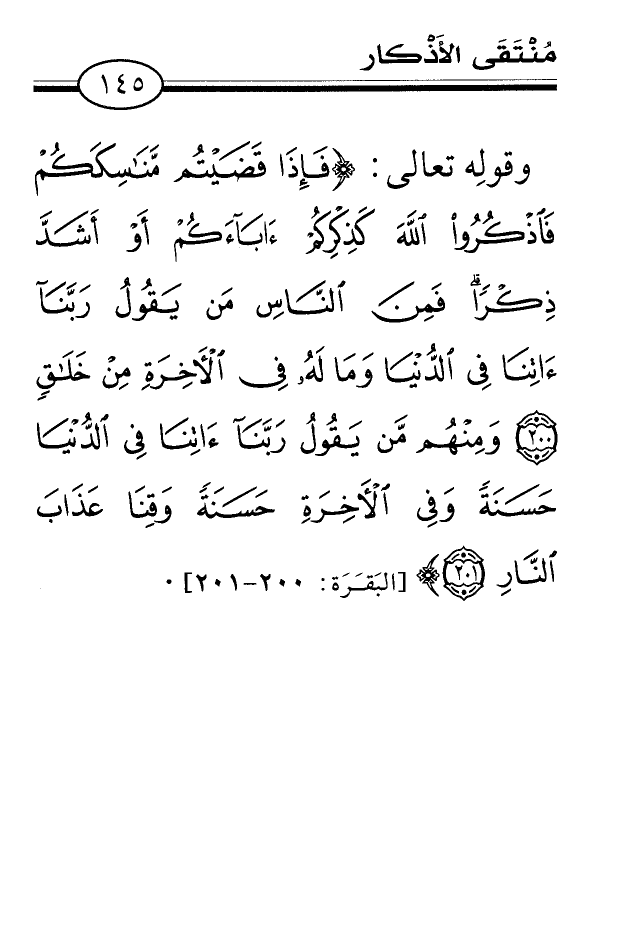 مُنْتَقَى الأَذْكار
١٤٥
وقولِه تعالى : ﴿فَإِذَا قَضَيْتُم مَّنَٰسِكَكُمْ
فَٱذْكُرُوا۟ ٱللَّهَ كَذِكْرِكُمْ ءَابَآءَكُمْ أَوْ أَشَدَّ
ذِكْرًا ۗ فَمِنَ ٱلنَّاسِ مَن يَقُولُ رَبَّنَآ
ءَاتِنَا فِى ٱلدُّنْيَا وَمَا لَهُۥ فِى ٱلْأَخِرَةِ مِنْ خَلَٰقٍ
٢٠٠ وَمِنْهُم مَّن يَقُولُ رَبَّنَآ ءَاتِنَا فِى ٱلدُّنْيَا
حَسَنَةً وَفِى ٱلْأَخِرَةِ حَسَنَةً وَقِنَا عَذَابَ
ٱلنَّارِ ٢٠١﴾ [البَقَرَة: ٢٠٠-٢٠١] .